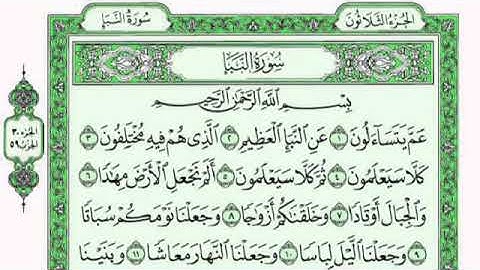 الجزء الثلاثون
سورة النبإ
سُورَةُ النَّبَإِ
الجزء ٣٠
الحزب ٥٩
بِسْمِ اللَّهِ الرَّحْمَٰنِ الرَّحِيمِ
عَمَّ يَتَسَاءَلُونَ ١ عَنِ النَّبَإِ الْعَظِيمِ ٢ الَّذِي هُمْ فِيهِ مُخْتَلِفُونَ ٣
كَلَّا سَيَعْلَمُونَ ٤ ثُمَّ كَلَّا سَيَعْلَمُونَ ٥ أَلَمْ نَجْعَلِ الْأَرْضَ مِهَادًا ٦
وَالْجِبَالَ أَوْتَادًا ٧ وَخَلَقْنَاكُمْ أَزْوَاجًا ٨ وَجَعَلْنَا نَوْمَكُمْ سُبَاتًا
٩ وَجَعَلْنَا اللَّيْلَ لِبَاسًا ١٠ وَجَعَلْنَا النَّهَارَ مَعَاشًا ١١ وَبَنَيْنَا